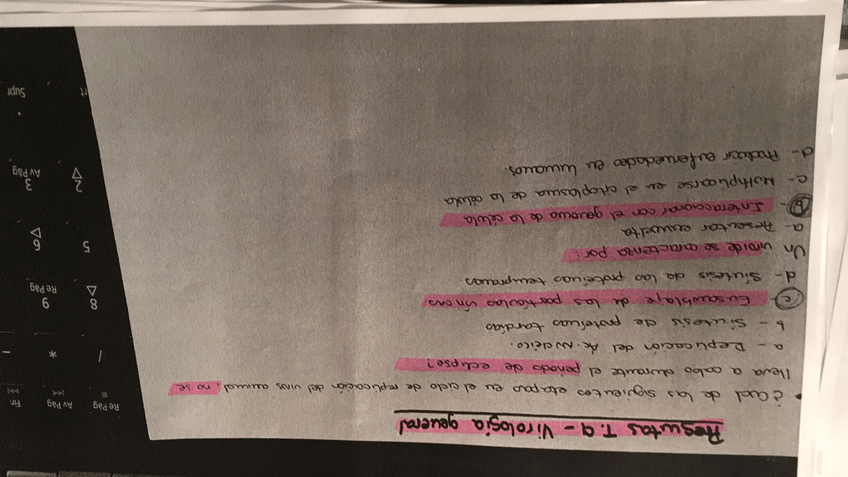 Preguntas T.9 - Virología general
• ¿Cuál de las siguientes etapas en el ciclo de replicación del virus animal, no se
lleva a cabo durante el periodo de eclipse?
a- Replicación del Ac. Nucleico.
b- Síntesis de proteínas tardías
c- Ensamblaje de las partículas víricas
d- Síntesis de las proteínas tempranas
Un viroide se caracteriza por:
a- Presentar envuelta
b- Interaccionar con el genoma de la célula
c- Multiplicarse en el citoplasma de la célula
d- Producir enfermedades en humanos.
Re Pág
Av Pág
Fin
/
*
-
8
9
Re Pág
5
6
2
3
Av Pág
Supr